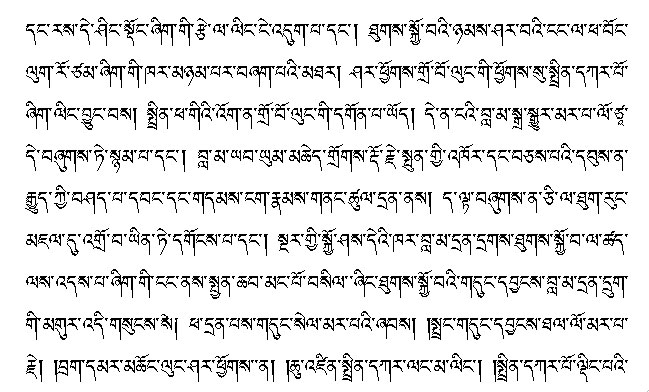 དང་རས་དེ་ཤིང་སྡོང་ཞིག་གི་རྩེ་ལ་ལིང་ངེ་འདུག་པ་དང་། ཐུགས་སྐྱོ་བའི་ཉམས་ཤར་བའི་ངང་ལ་ཕ་བོང་
ལུག་རོ་ཙམ་ཞིག་གི་ཁར་མཉམ་པར་བཞག་པའི་མཐར། ཤར་ཕྱོགས་གྲོ་བོ་ལུང་གི་ཕྱོགས་སུ་སྤྲིན་དཀར་པོ་
ཞིག་ལིང་བྱུང་བས། སྤྲིན་ཕ་གིའི་འོག་ན་གྲོ་བོ་ལུང་གི་དགོན་པ་ཡོད། དེ་ན་ངའི་བླ་མ་སྒྲ་སྒྱུར་མར་པ་ལོ་ཙཱ་
དེ་བཞུགས་ཏེ་སྙམ་པ་དང་། བླ་མ་ཡབ་ཡུམ་མཆེད་གྲོགས་རྡོ་རྗེ་སྤུན་གྱི་འཁོར་དང་བཅས་པའི་དབུས་ན་
རྒྱུད་ཀྱི་བཤད་པ་དབང་དང་གདམས་ངག་རྣམས་གནང་ཚུལ་དྲན་ནས། ད་ལྟ་བཞུགས་ན་ཅི་ལ་ཐུག་རུང་
མཇལ་དུ་འགྲོ་བ་ཡིན་ཏེ་དགོངས་པ་དང་། སྔར་གྱི་སྐྱོ་ཤས་དེའི་ཁར་བླ་མ་དྲན་དྲགས་ཐུགས་སྐྱོ་བ་ལ་ཚད་
ལས་འདས་པ་ཞིག་གི་ངང་ནས་སྤྱན་ཆབ་མང་པོ་བསིལ་ཞིང་ཐུགས་སྐྱོ་བའི་གདུང་དབྱངས་བླ་མ་དྲན་དྲུག་
གི་མགུར་འདི་གསུངས་སོ། ཕ་དྲན་པས་གདུང་སེལ་མར་པའི་ཞབས། །སྤྲང་གདུང་དབྱངས་ཐལ་ལོ་མར་པ་
རྗེ། །བྲག་དམར་མཆོང་ལུང་ཤར་ཕྱོགས་ན། །ཆུ་འཛིན་སྤྲིན་དཀར་ལང་མ་ལིང་། །སྤྲིན་དཀར་པོ་ལྡིང་པའི་